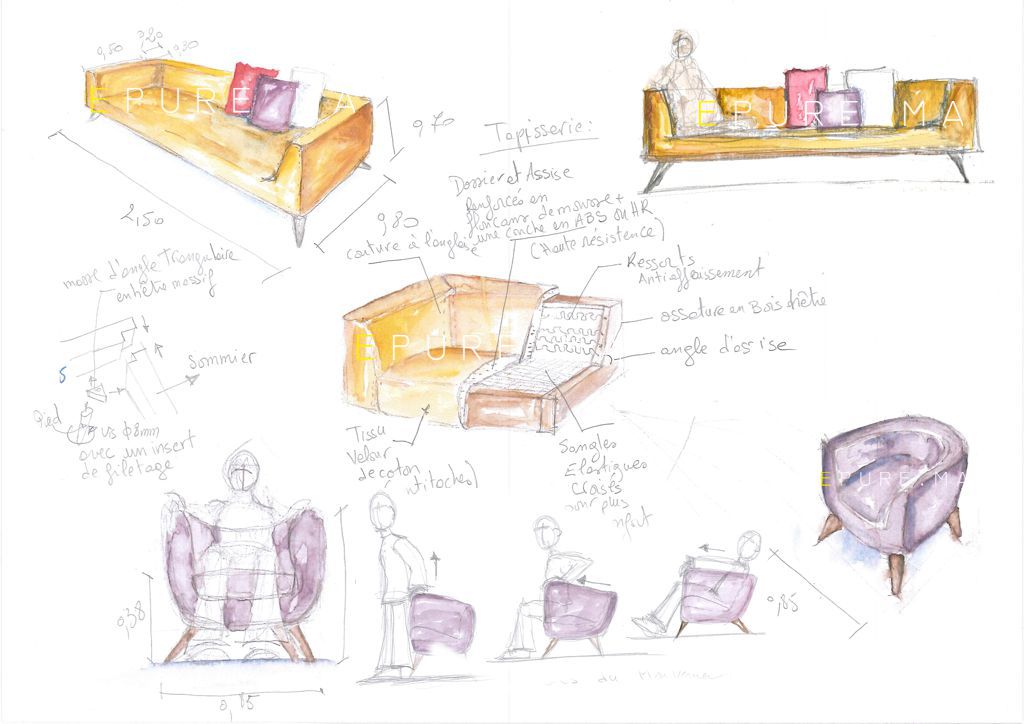 0,50
0,20
0,30
EPURE.MA
0,70
2,50
0,80
EPURE.MA
Tapisserie:
Dossier et Assise
Renforcés en
une couche en ABS ou HR
(Haute résistence)
couture à l'anglaise
Ressorts
Antiaffaissement
ossature en Bois hêtre
angle d'assise
EPURE
masse d'angle Triangulaire
en hêtre massif
S
Sommier
Pied
vis Φ8mm
avec un insert
de filetage
Tissu
Velour
de coton
Sangles
Elastiques
Croisés
pour plus
EPURE.MA
0,38
0,85
0,85